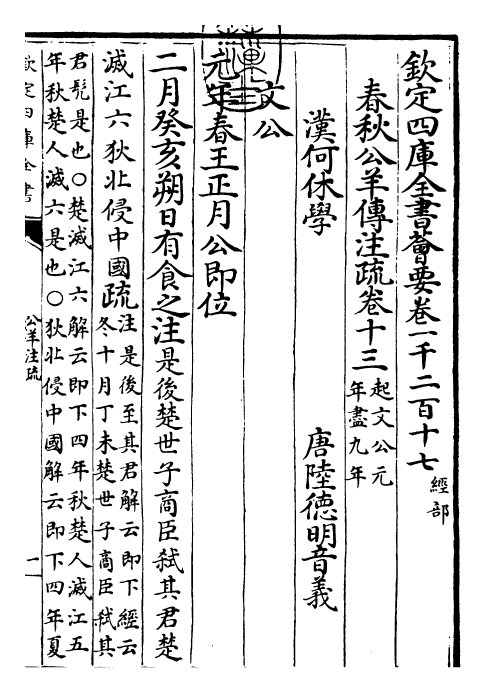 欽定四庫全書薈要卷一千二百十七 經部
春秋公羊傳注疏卷十三 起文公元
年盡九年
漢何休學 唐陸德明音義
文公
元年春王正月公即位
二月癸亥朔日有食之注是後楚世子商臣弑其君楚
滅江六狄北侵中國疏 注是後至其君解云即下經云
冬十月丁未楚世子商臣弑其
君髠是也○楚滅江六解云即下四年秋楚人滅江五
年秋楚人滅六是也○狄北侵中國解云即下四年夏
欽定四庫全書
公羊注疏
一